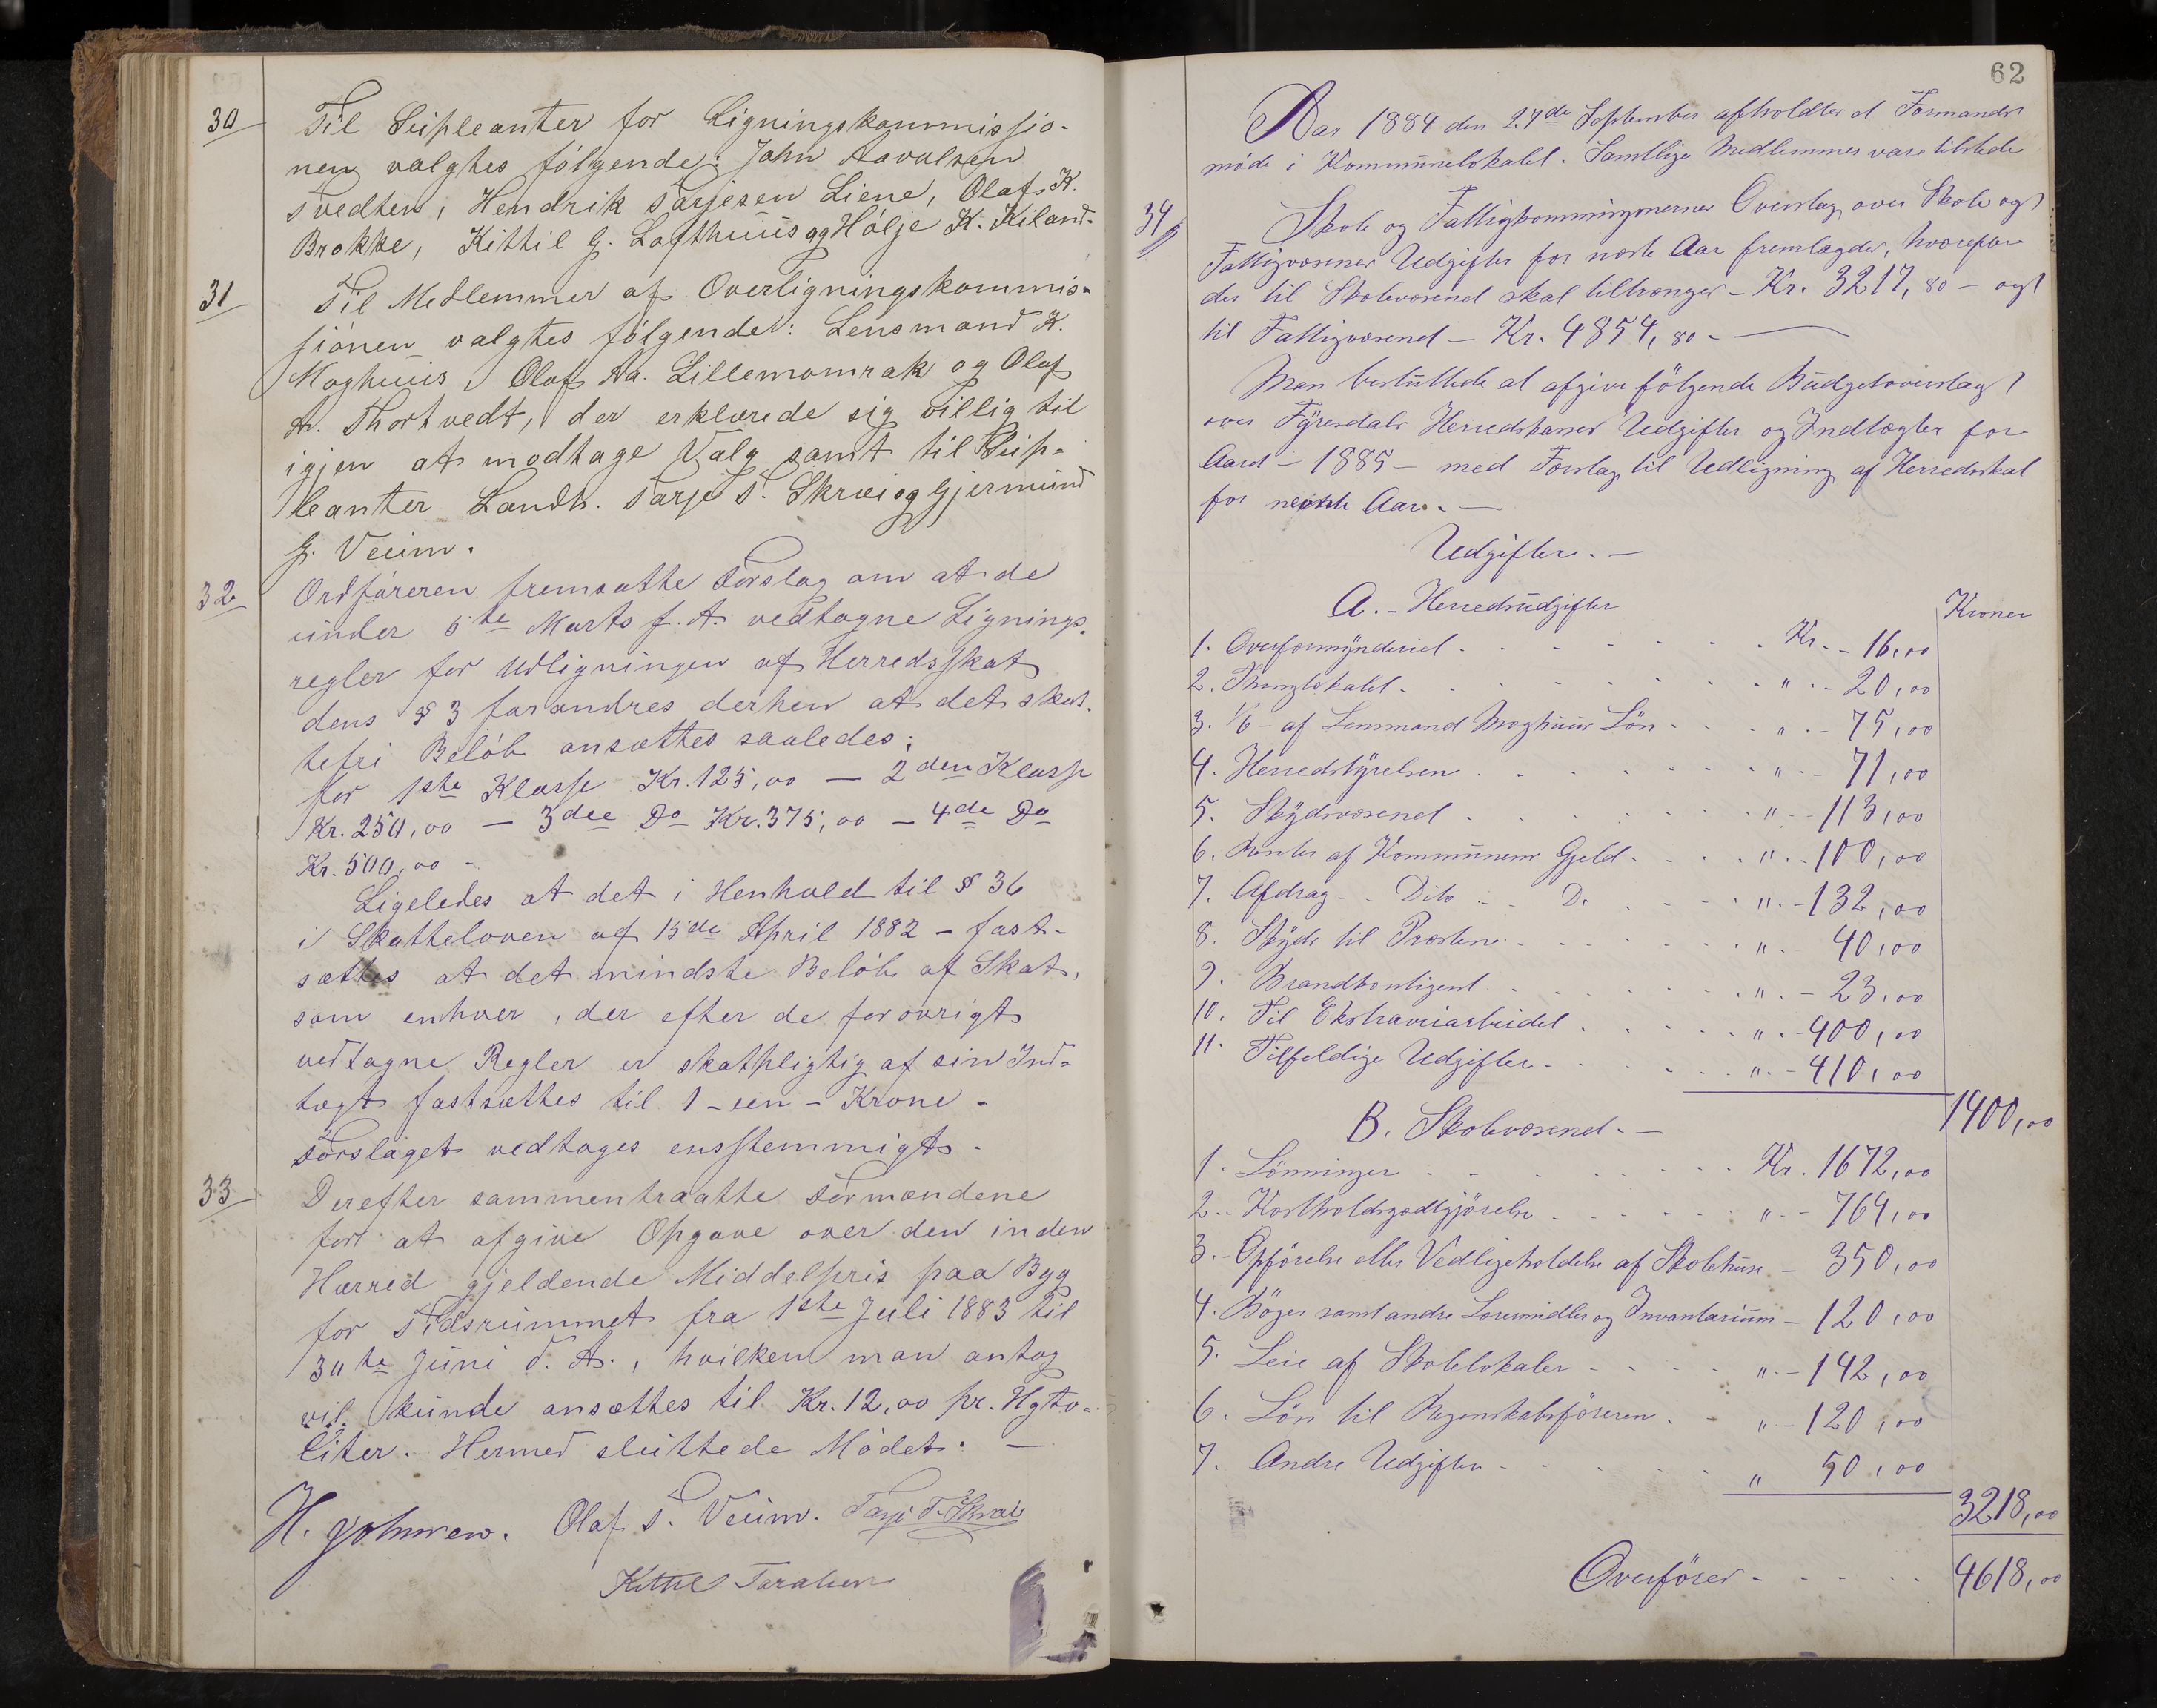 30
Til Suppleanter for Ligningskommissio-
nen valgtes følgende: John Aavalsen
Tvedten, Hendrik Tarjesen Liene, Olaf K.
Brokke, Kittil G. Lofthuus og Hölje K. Kiland.
31
Til Medlemmer af Overligningskommis-
sionen valgtes følgende: Lensmand K.
Moghuus, Olaf Aa. Lillemomrak og Olaf
A. Thortvedt, der erklærede sig villig til
igjen at modtage Valg samt til Sup-
leanter Landh. Tarje T. Skræi og Gjermund
G. Veum.
32
Ordføreren fremsatte Forslag om at de
under 5te Marts f. A. vedtagne Lignings-
regler for Udligningen af Herredsskat
dens § 3 forandres derhen at det skat-
tefri Beløb ansættes saaledes:
for 1ste Klasse Kr. 125,00 — 2den Klasse
Kr. 250,00 — 3die Do Kr. 375,00 — 4de Do
Kr. 500,00 -
Ligeledes at det i Henhold til § 36
i Skatteloven af 15de April 1882 - fast-
sættes at det mindste Beløb af Skat,
som enhver, der efter de forøvrigt
vedtagne Regler er skatpligtig af sin Ind-
tægt fastsættes til 1 - een - Krone -
Forslaget vedtoges enstemmigt -
33
Derefter sammentraatte Formændene
for at afgive Opgave over den inden
Herred gjeldende Middelpris paa Byg
for Tidsrummet fra 1ste Juli 1883 til
30te Juni d. A., hvilken man antog
vil kunde ansættes til Kr. 12,00 pr. Hgto-
liter. Hermed sluttede Mødet. —
H. Johnsen. Olaf T. Veum. Tarje T. Skræi
Kittil Taraldsen
62
Aar 1884 den 27de September afholdtes et Formands
møde i Kommunelokalet. Samtlige Medlemmer vare tilstede
34
Skole og Fattigkommisjonernes Overslag over Skole og
Fattigvæsenes Udgifter for næste Aar fremlagdes, hvorefter
der til Skolevæsenet skal tiltrænges - Kr. 3217,80 - og
til Fattigvæsenet - Kr. 4854,80 -
Man besluttede at afgive følgende Budgetoverslag
over Fyresdals Herredskasses Udgifter og Indtægter for
Aaret - 1885 - med Forslag til Udligning af Herredsskat
for næste Aar. -
Udgifter. -
A. - Herredsudgifter
Kroner
1. Overformynderiet - Kr. - 16,00
2. Thinglokalet - " - 20,00
3. 1/6 - af Lensmand Moghuus Løn - " - 75,00
4. Herredstyrelsen - " - 71,00
5. Skydsvæsenet - " - 113,00
6. Renter af Kommunens Gjeld - " - 100,00
7. Afdrag - Dito - Do - " - 132,00
8. Skyds til Præstene - " - 40,00
9. Brandkontigent - " - 23,00
10. Til Ekstraveiarbeidet - " - 400,00
11. Tilfeldige Udgifter - " - 410,00
1400,00
B. Skolevæsenet. -
1. Lønninger - Kr. 1672,00
2. Kostholdsgodtgjørelse - " - 764,00
3. Opførelse eller Vedligeholdelse af Skolehuse - 350,00
4. Bøger samt andre Læremidler og Invantarium - 120,00
5. Leie af Skolelokaler - " - 142,00
6. Løn til Regnskabsføreren - " - 120,00
7. Andre Udgifter - " 50,00
3218,00
Overføres - 4618,00